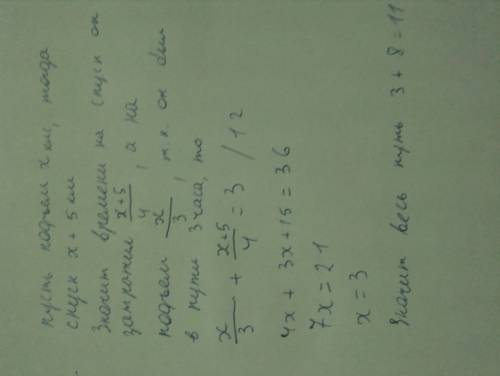 пусть подъем x км, тогда
спуск x + 5 км
Значит времени на спуск он
затратит \frac{x+5}{4}, а на
подъем \frac{x}{3}, т.к. он был
в пути 3 часа, то
\frac{x}{3} + \frac{x+5}{4} = 3 / 12
4x + 3x + 15 = 36
7x = 21
x = 3
Значит весь путь 3 + 8 = 11